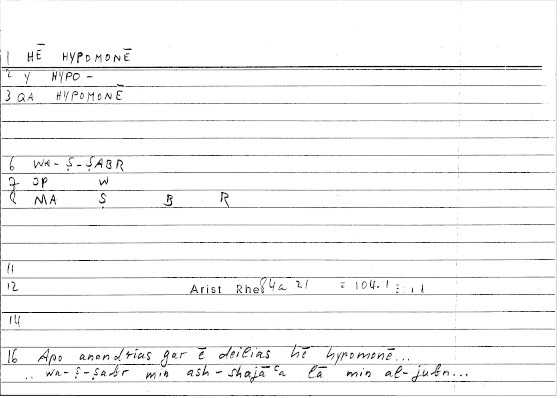 1 HĒ HYPOMONĒ
2 Y HYPO -
3 QA HYPOMONĒ
6 WA- Ṣ - ṢABR
7 JP W
8 MA Ṣ B R
11
12 Arist Rhe 84a 21 = 104.1
14
16 Apo anandrias gar ē deilias hē hypomonē...
.. wa-ṣ-ṣabr min ash-shajāʿa lā min al-jubn...